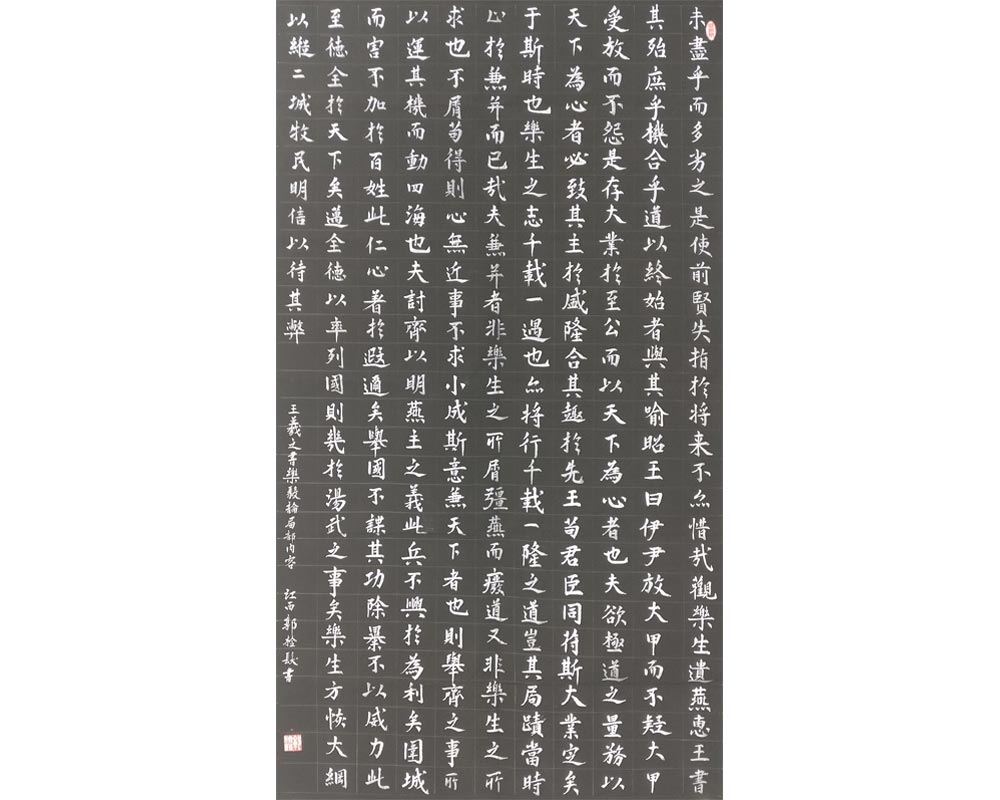 未盡乎而多劣之是使前賢失指於将来不亦惜哉觀樂生遺燕惠王書
其殆庶乎機合乎道以終始者與其喻昭王曰伊尹放大甲而不疑大甲
受放而不怨是存大業於至公而以天下為心者也夫欲極道之量務以
天下為心者必致其主於盛隆合其趣於先王苟君臣同符斯大業定矣
于斯時也樂生之志千載一遇也亦将行千載一隆之道豈其局蹟當時
止於兼并而已哉夫兼并者非樂生之所屑彊燕而癈道又非樂生之所
求也不屑苟得則心無近事不求小成斯意兼天下者也則舉齊之事所
以運其機而動四海也夫討齊以明燕主之義此兵不興於為利矣圍城
而害不加於百姓此仁心著於遐邇矣舉國不謀其功除暴不以威力此
至德全於天下矣邁全德以率列國則幾於湯武之事矣樂生方恢大綱
以縱二城牧民明信以待其弊
王羲之書樂毅論局部内容 江西郭